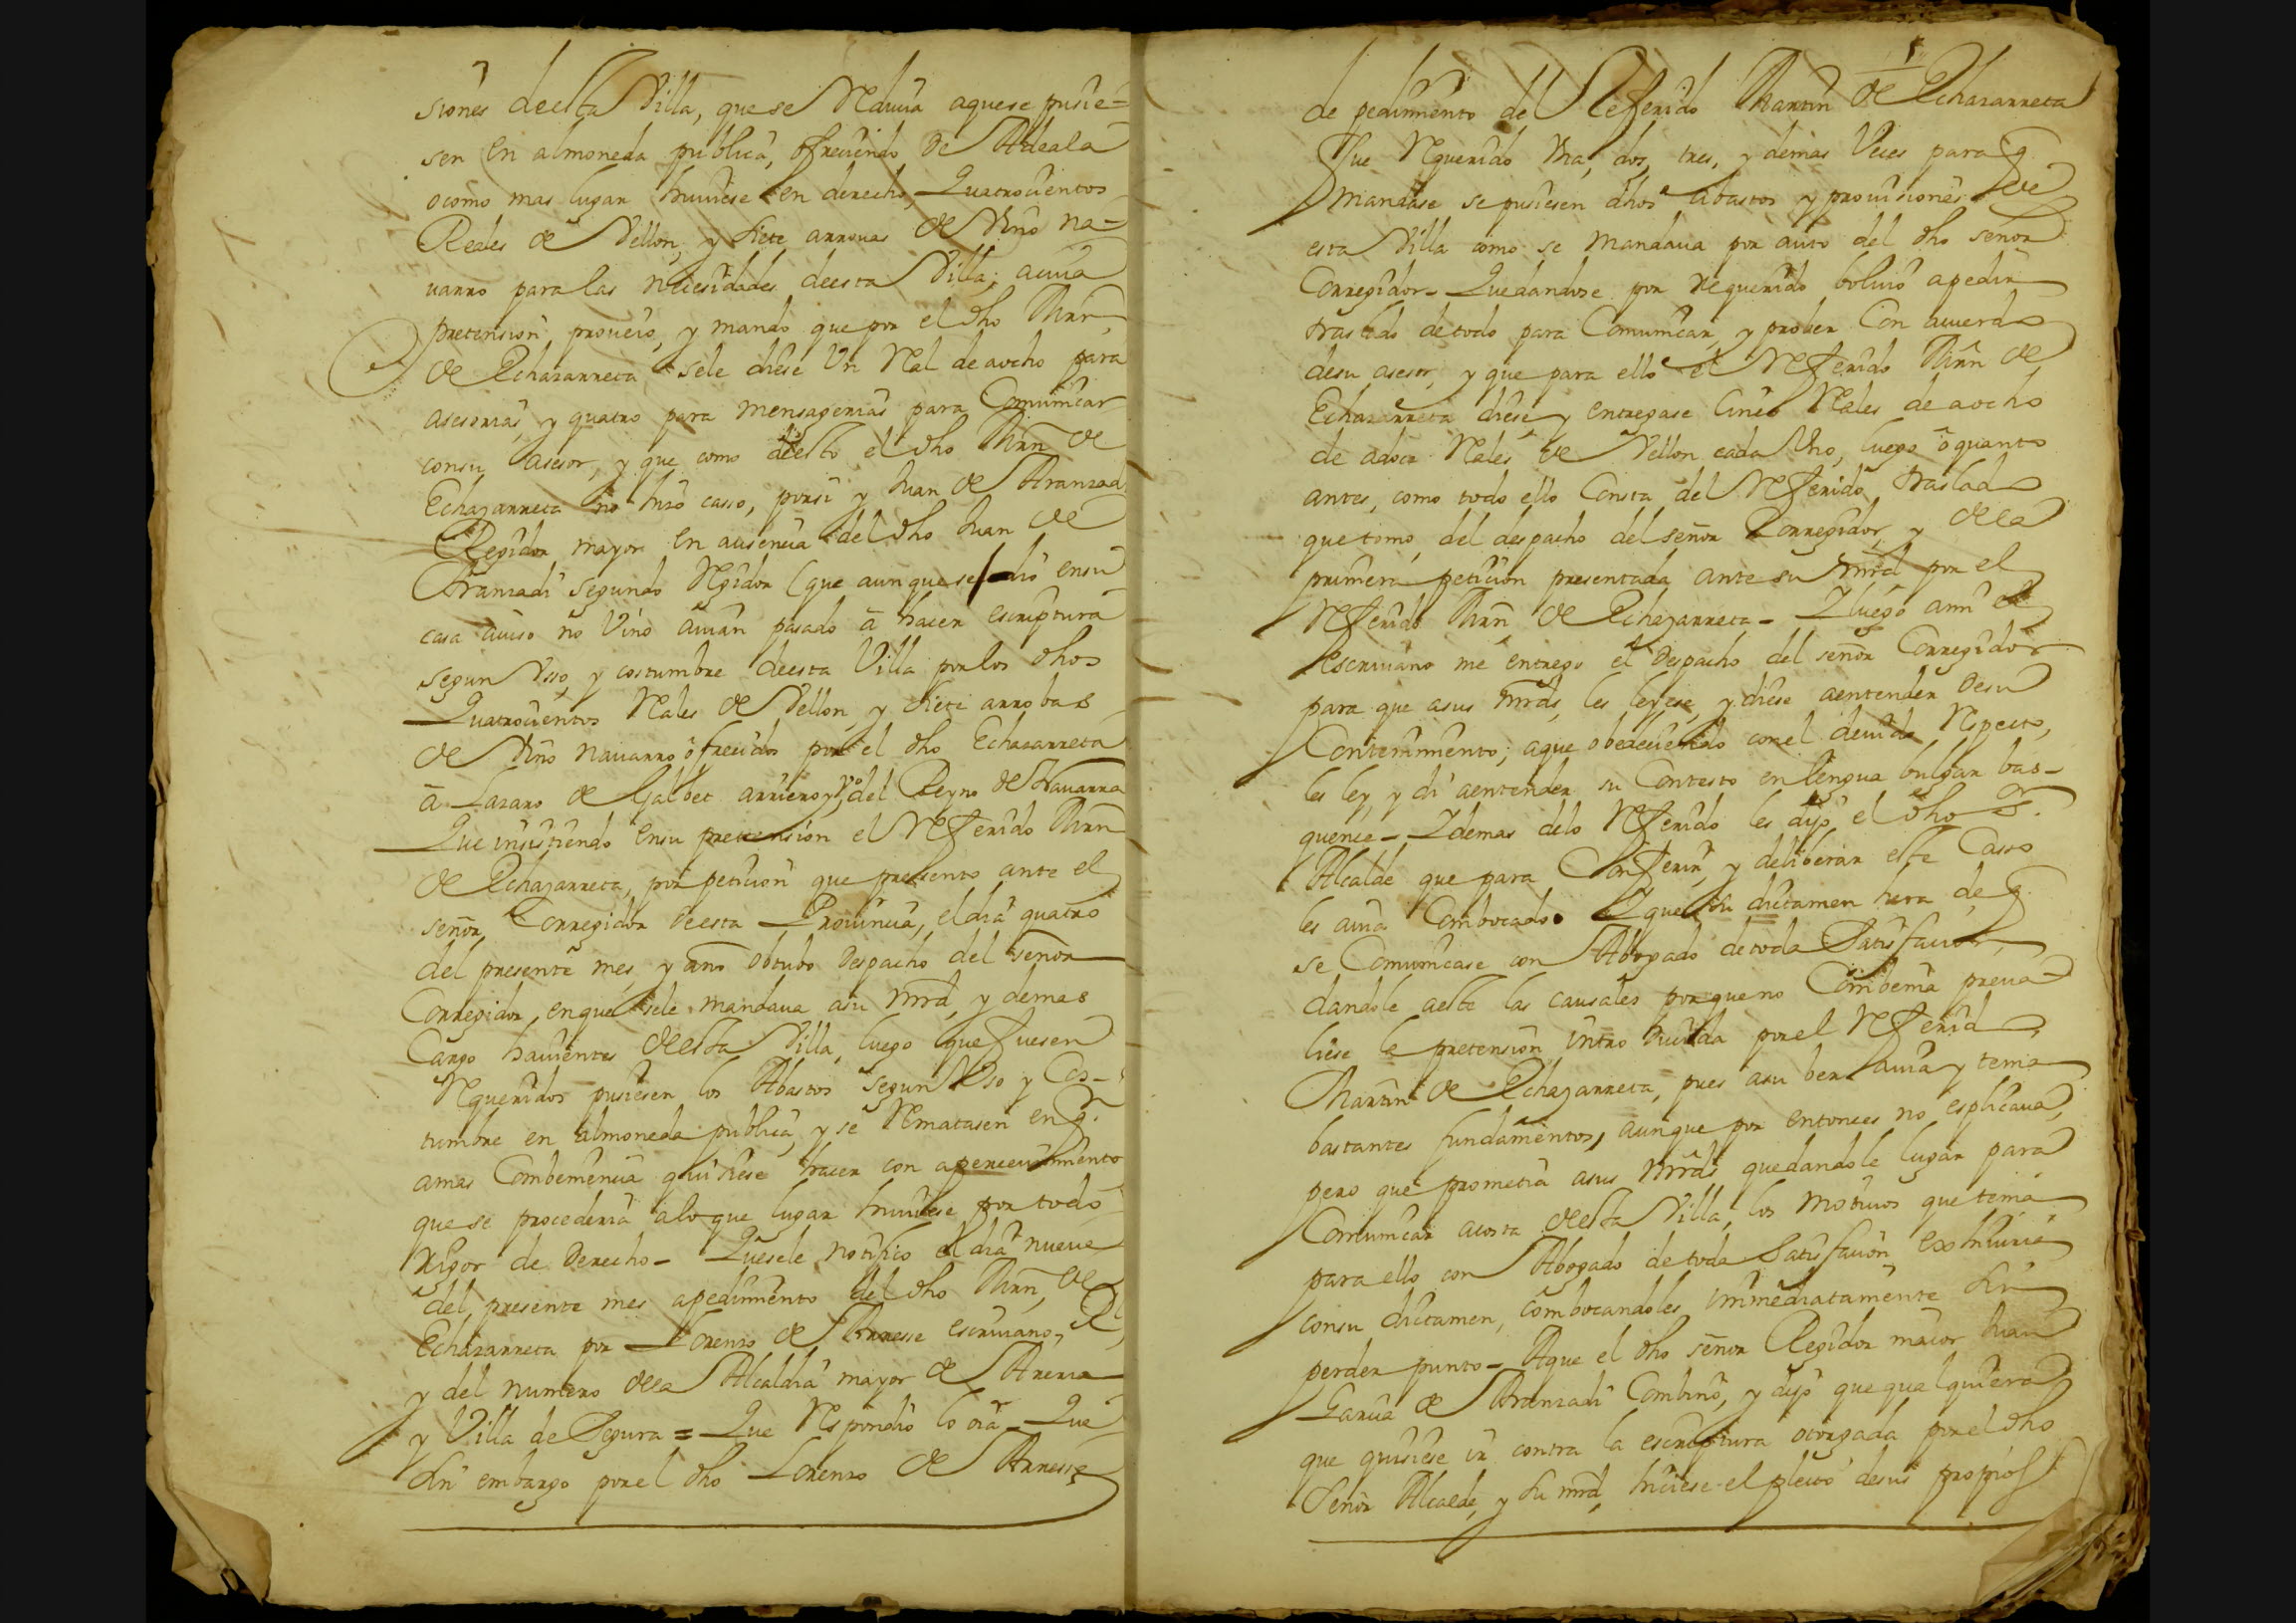 siones deesta Villa, que se Reducia aquese pusie=
sen en almoneda publica, ofreciendo de Adeala
ocomo mas lugar huuiese en derecho, Quatrocientos
Reales de Vellon, y siete arrouas de Vino na=
uarro para las necesidades deesta Villa; acuia
pretension proueio, y mando que por el dho Mrn
de Echazarreta sele diese Un Real de aocho para
asesorias, y quatro para mensagerias para Comunicar
consu asesor, y que como deesto el dho Mrn de
Echazarreta no hizo casso, porsi y Juan de Aranzadi
Regidor mayor en ausencia del dho Juan de
Aranzadi segundo Regidor (que aunque se dio ensu
casa auiso no Vino auian pasado a hacer escriptura
segun Vsso, y costumbre deesta Villa por los dhos
Quatrocientos Reales de Vellon, y siete arrobas
de Vino nauarro ofrecidos por el dho Echazarreta
a Lazaro de Galbet arriero y vo del Reyno de Nauarra
Que insistiendo ensu pretension el Referido Mrn
de Echazarreta, por peticion que presento ante el
señor Corregidor deesta Prouincia, el dia quatro
del presente mes, y año obtubo Despacho del señor
Corregidor, enque sele mandaua asu mrd, y demas
Cargo hauientes deesta Villa, luego que fuesen
Requeridos pusiesen los Abastos segun Vso y Cos-
tumbre en almoneda publica, y se Rematasen en q.
amas Combeniencia quisiese hacer con aperceuimiento
que se procederia alo que lugar huuiese por todo
Rigor de Derecho- Quesele notifico el dia nueue
del presente mes apedimiento del dho Mrn de
Echazarreta por Lorenzo de Arrese escriuano Rl
y del numero dela Alcaldia mayor de Areria
y Villa de Segura = Que Respondio lo oia Que
sin embargo por el dho Lorenzo de Arrese
de pedimiento del Referido Martin de Echazarreta
fue Requerido Vna, dos, tres, y demas Veces para q.
mandase se pusiesen dhos abastos y prouisiones de
esta Villa como se mandaua por auto del dho señor
Corregidor- Quedandose por Requerido boluio apedir
traslado detodo para Comunicar, y prober Con acuerdo
desu asesor, y que para ello el Referido Mrn de
Echazarreta diese y entregase Cinco Reales de aocho
de adoce Reales de Vellon cada Uno, luego o quanto
antes, como todo ello Consta del Referido traslado
que tomo, del despacho del señor Corregidor, y dela
primera peticion presentada ante su mrd por el
Referido Mrn de Echazarreta- Y luego ami el
escriuano me entrego el Despacho del señor Corregidor
para que asus mrds, les leyese, y diese aentender desu
Contenimiento; aque obedeciendo conel deuido Respecto,
les ley, y di aentender su Contesto en lengua bulgar bas-
quence- Y demas delo Referido les dijo el dho Sr.
Alcalde que para Conferir, y deliberar este Casso
les auia Combocado. Y que su dictamen hera de q.
se Comunicase con Abogado detoda Satisfacion,
dandole aeste las causales por que no Combenia preua-
liese la pretension introducida porel Referido
Martin de Echazarreta, pues asu ber auia y tenia
bastantes fundamentos, aunque por entonces no esplicaua,
pero que prometia asus mrds quedandole lugar para
Comunicar acosta deesta Villa, los motiuos que tenia
para ello con Abogado detoda Satisfacion exhiuiria
consu dictamen, combocandoles immediatamente sin
perder punto- Aque el dho señor Regidor maior Juan
Garcia de Aranzadi Combino, y dijo que qualquiera
que quisiese ir contra la escriptura otorgada porel dho
Señor Alcalde, y su mrd, hiciese el pleito desus propios